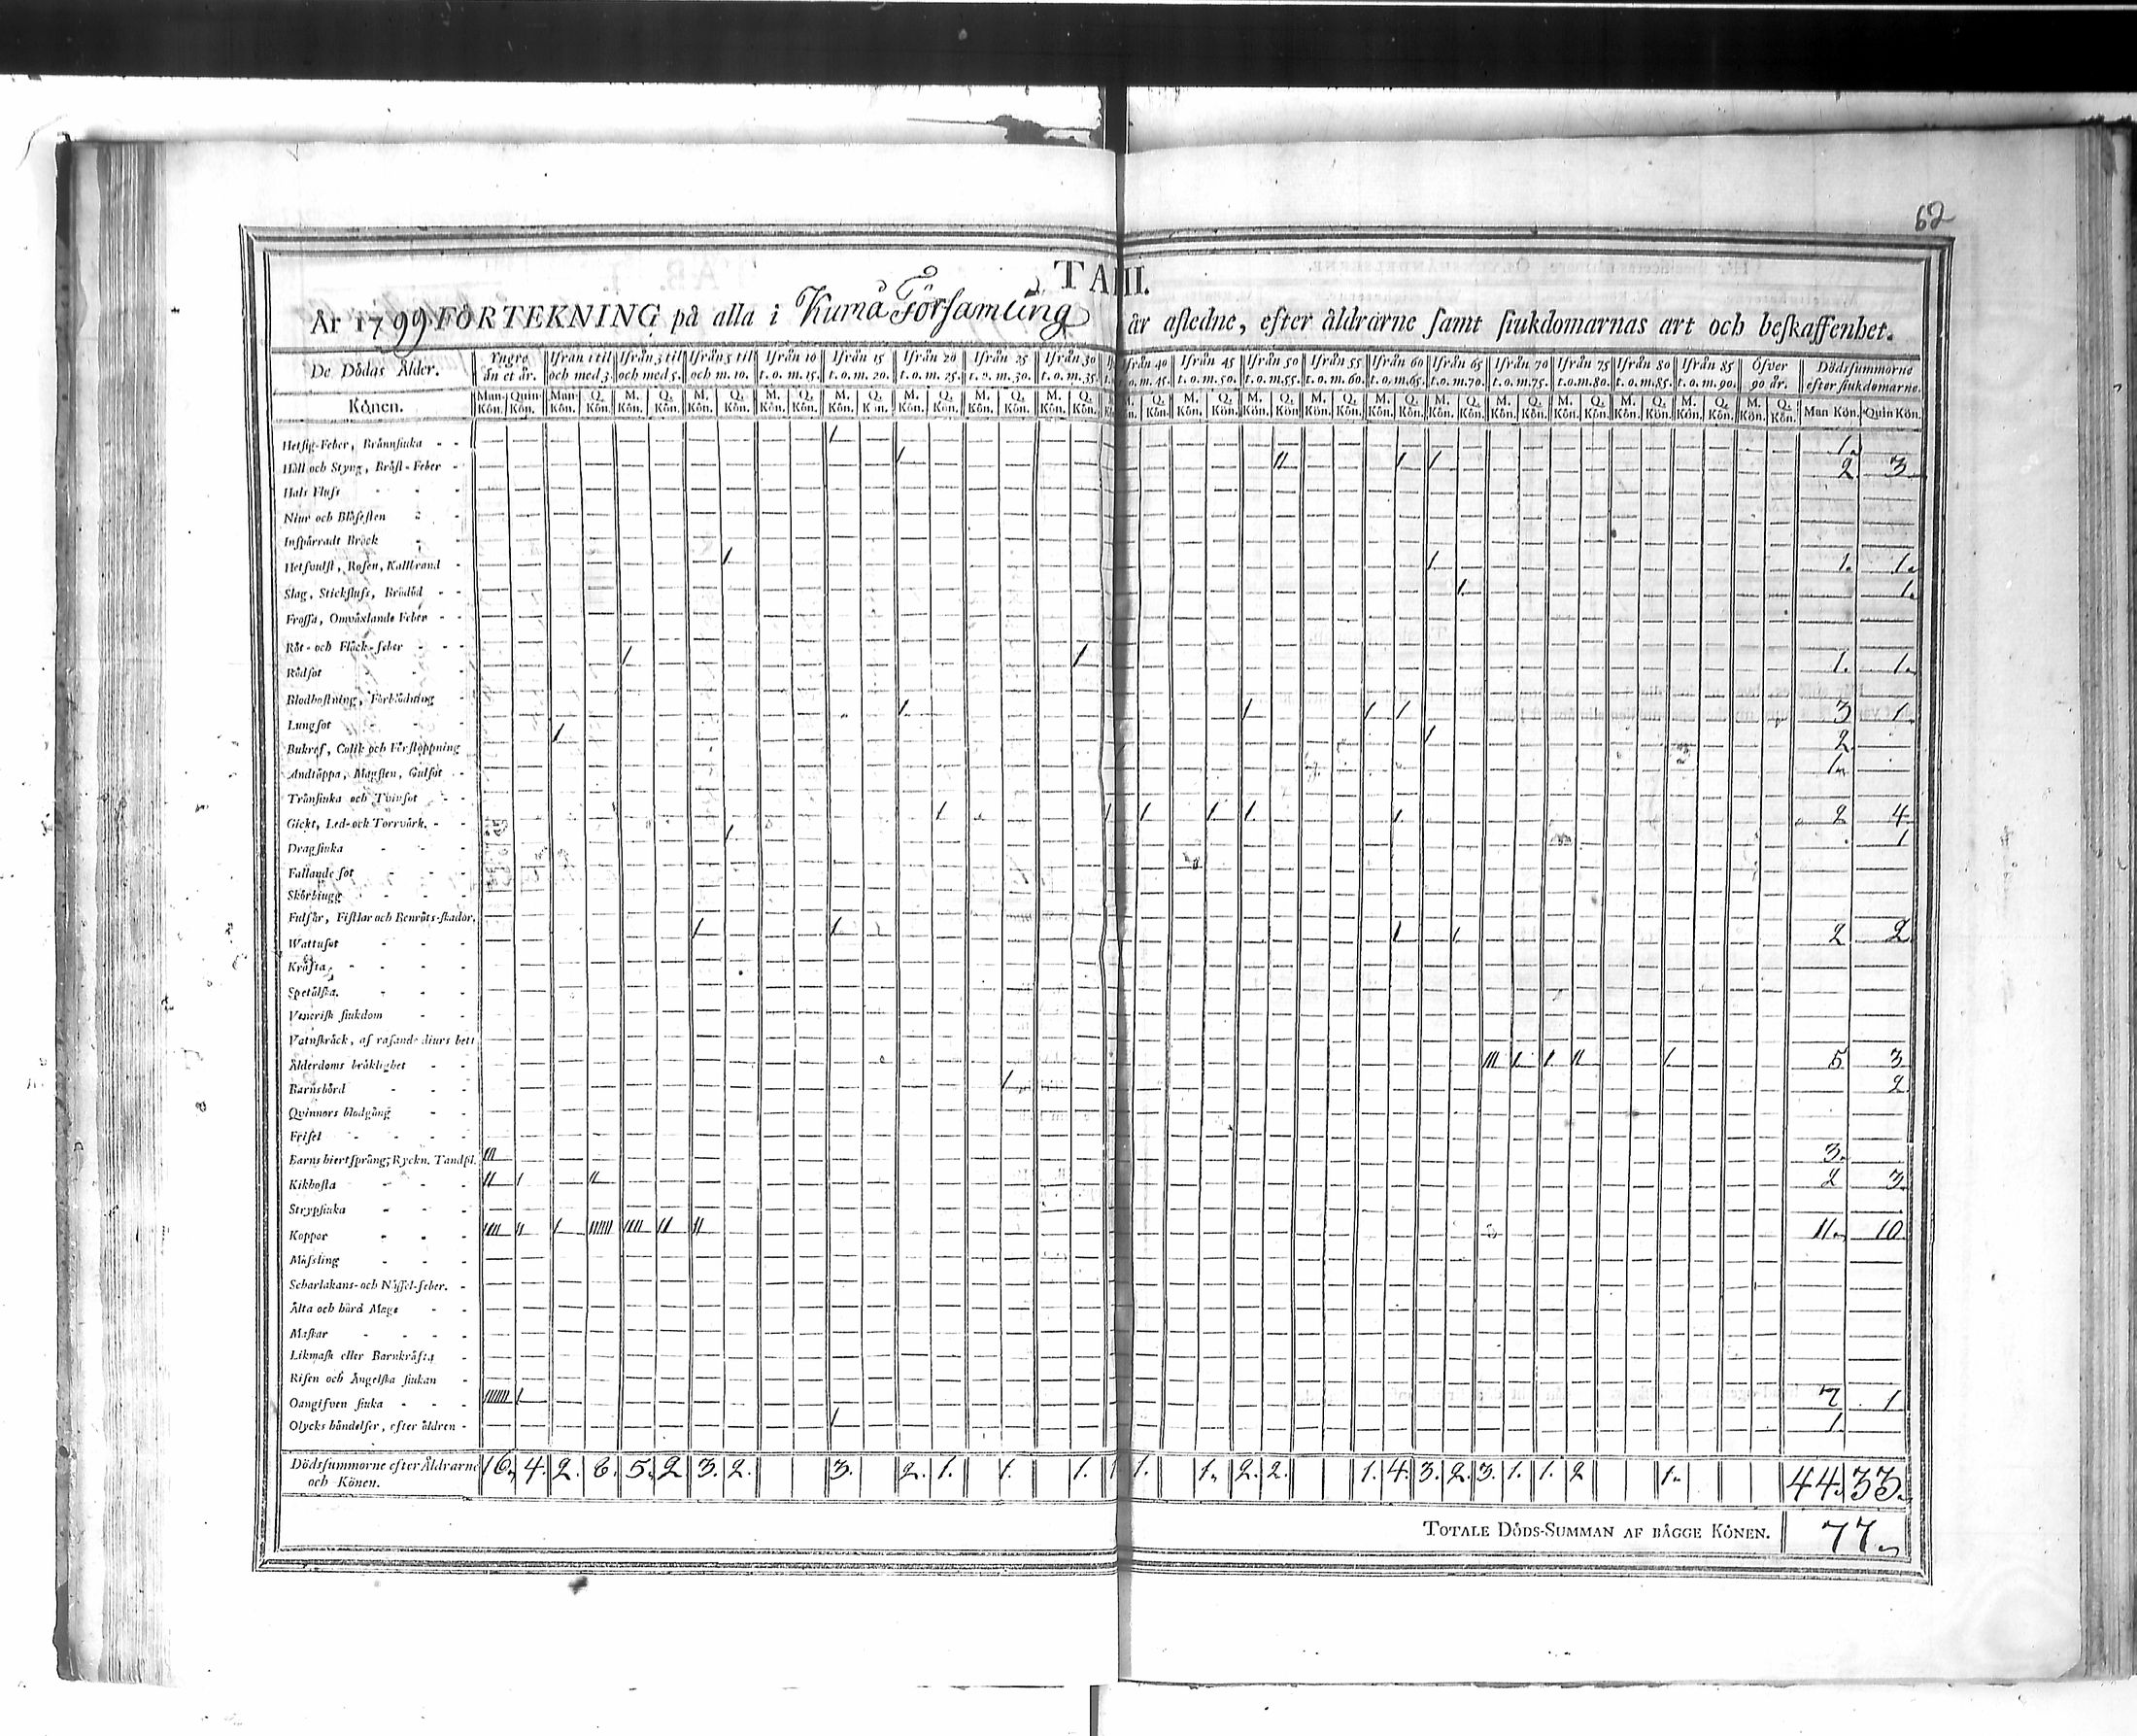 62
TA II.
År 1799 FÖRTEKNING på alla i Kumå Församling år afledne, efter åldrarne samt siukdomarnas art och beskaffenhet.
De Dödas Ålder. Yngre än et år. Ifrån 1 til och med 3. Ifrån 3 til och med 5. Ifrån 5 til och m. 10. Ifrån 10 t. o. m. 15. Ifrån 15 t. o. m. 20. Ifrån 20 t. o. m. 25. Ifrån 25 t. o. m. 30. Ifrån 30 t. o. m. 35. från 40 o. m. 45. Ifrån 45 t. o. m. 50. Ifrån 50 t. o. m. 55. Ifrån 55 t. o. m. 60. Ifrån 60 t. o. m. 65. Ifrån 65 t. o. m. 70. Ifrån 70 t. o. m. 75. Ifrån 75 t. o. m. 80. Ifrån 80 t. o. m. 85. Ifrån 85 t. o. m. 90. Öfver 90 år. Dödssummorne efter siukdomarne.
Könen. Man-Kön. Quin-Kön. Man-Kön. Q. Kön. M. Kön. Q. Kön. M. Kön. Q. Kön. M. Kön. Q. Kön. M. Kön. Q. Kön. M. Kön. Q. Kön. M. Kön. Q. Kön. M. Kön. Q. Kön. Q. Kön. M. Kön. Q. Kön. M. Kön. Q. Kön. M. Kön. Q. Kön. M. Kön. Q. Kön. M. Kön. Q. Kön. M. Kön. Q. Kön. M. Kön. Q. Kön. M. Kön. Q. Kön. M. Kön. Q. Kön. M. Kön. Q. Kön. Man Kön. Quin Kön.
Hetsig-Feber, Brännsiuka 1 1.
Håll och Styng, Bröst-Feber 1 11 1 1 2 3
Hals Fluss
Niur och Blåsesten
Inspärradt Bråck
Hetsvulst, Rosen, Kallbrand 1 1 1. 1.
Slag, Stickfluss, Brådöd 1. 1.
Frossa, Omväxlande Feber
Röt- och Fläck-feber
Rödsot 1 1 1. 1.
Blodhostning, Förblödning
Lungsot 1 1 1 1 3 1
Bukref, Colik och Förstoppning 1 1 2
Andtäppa, Magsten, Gulsot 1.
Trånsiuka och Tvinsot
Gickt, Led- och Torrvärk. 1 1 1 1 1. 1. 2 4
Dragsiuka 1. 1
Fallande sot
Skörbiugg
Fulsår, Fistlar och Benröts-skador,
Wattusot 1 1 1 1 2 2
Kräfta
Spetälska.
Venerisk siukdom
Vatnskräck, af rasande diurs bett
Ålderdoms bräklighet 111 1. 1. 11 1. 5 3
Barnsbörd 1 2
Qvinnors blodgång
Frisel
Barns hiertsprång; Ryckn. Tandsl. 111 3.
Kikhosta 11 1 11 2 3
Strypsiuka
Koppor 1111 11 1 111111 1111 11 11 11. 10.
Mässling
Scharlakans- och Nässel-feber.
Älta och hård Mage
Maskar
Likmask eller Barnkräfta
Risen och Ängelska siukan
Oangifven siuka 1111111 1 7 1
Olycks händelser, efter åldren 1 1.
Dödssummorne efter Åldrarne och Könen. 16. 4. 2. 6. 5. 2 3. 2. 3. 2. 1. 1. 1. 1 1. 1. 2. 2. 1. 4. 3. 2. 3. 1. 1. 2 1. 44. 33.
TOTALE DÖDS-SUMMAN AF BÄGGE KÖNEN. 77.